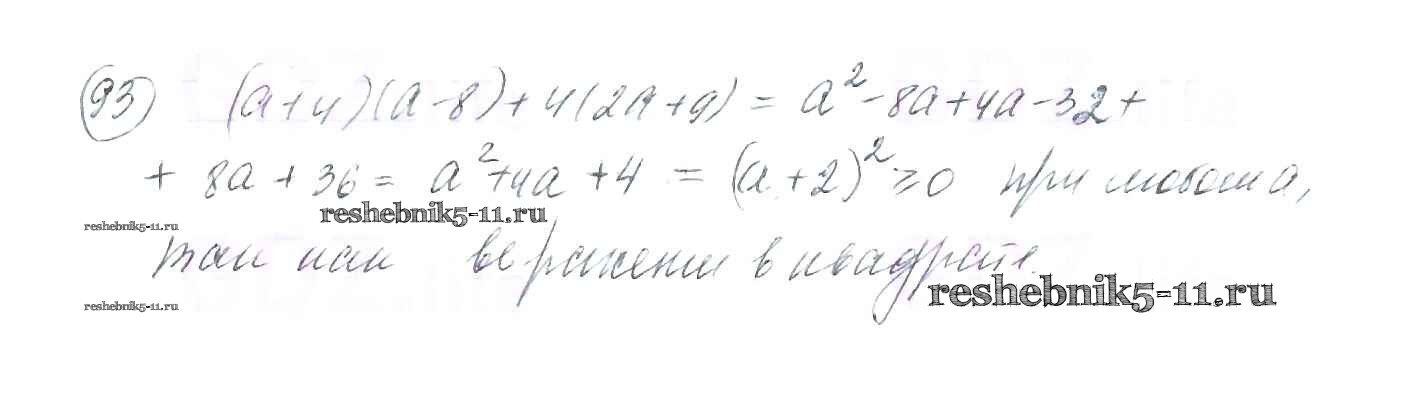 93) (a+4)(a-8)+4(2a+9) = a²-8a+4a-32+
+ 8a+36 = a²+4a+4 = (a+2)² ≥0 при любом a,
reshebnik5-11.ru
reshebnik5-11.ru
так как выражение в квадрате.
reshebnik5-11.ru
reshebnik5-11.ru